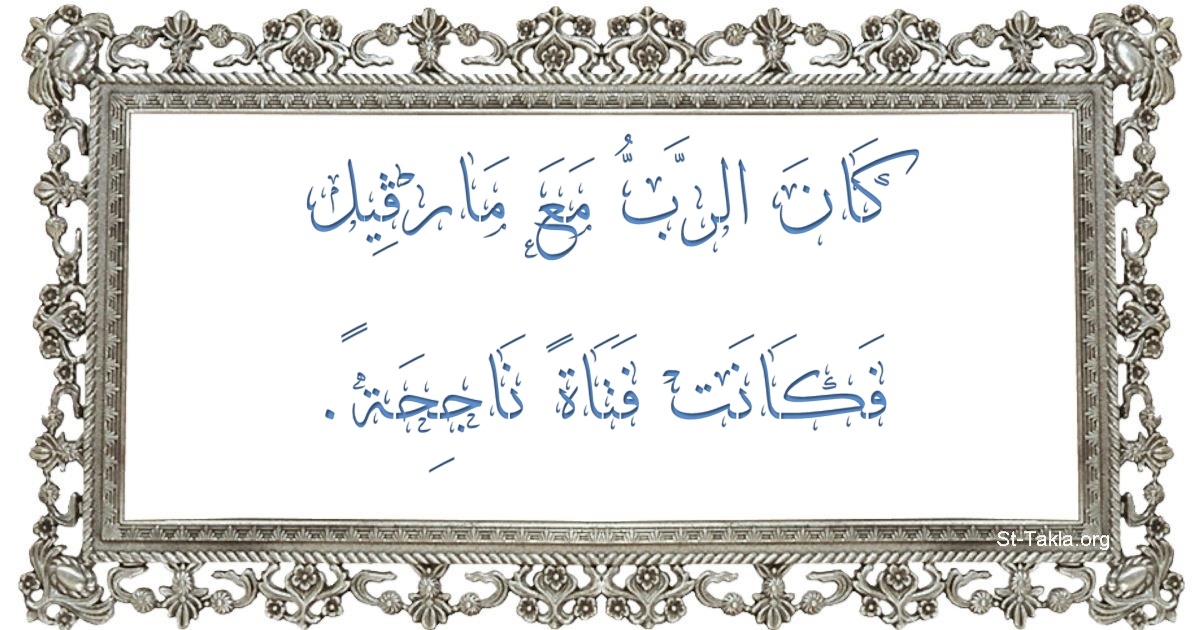 كَانَ الرَّبُّ مَعَ مَارڤِيل
فَكَانَت فَتَاةً نَاجِحَةً.
St-Takla.org